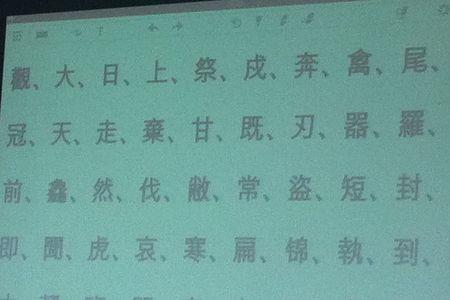 觀、大、日、上、祭、戍、奔、禽、尾、
冠、天、走、棄、甘、既、刃、器、羅、
前、鑫、然、伐、敝、常、盜、短、封、
即、聞、虎、哀、寒、扁、锦、執、到、